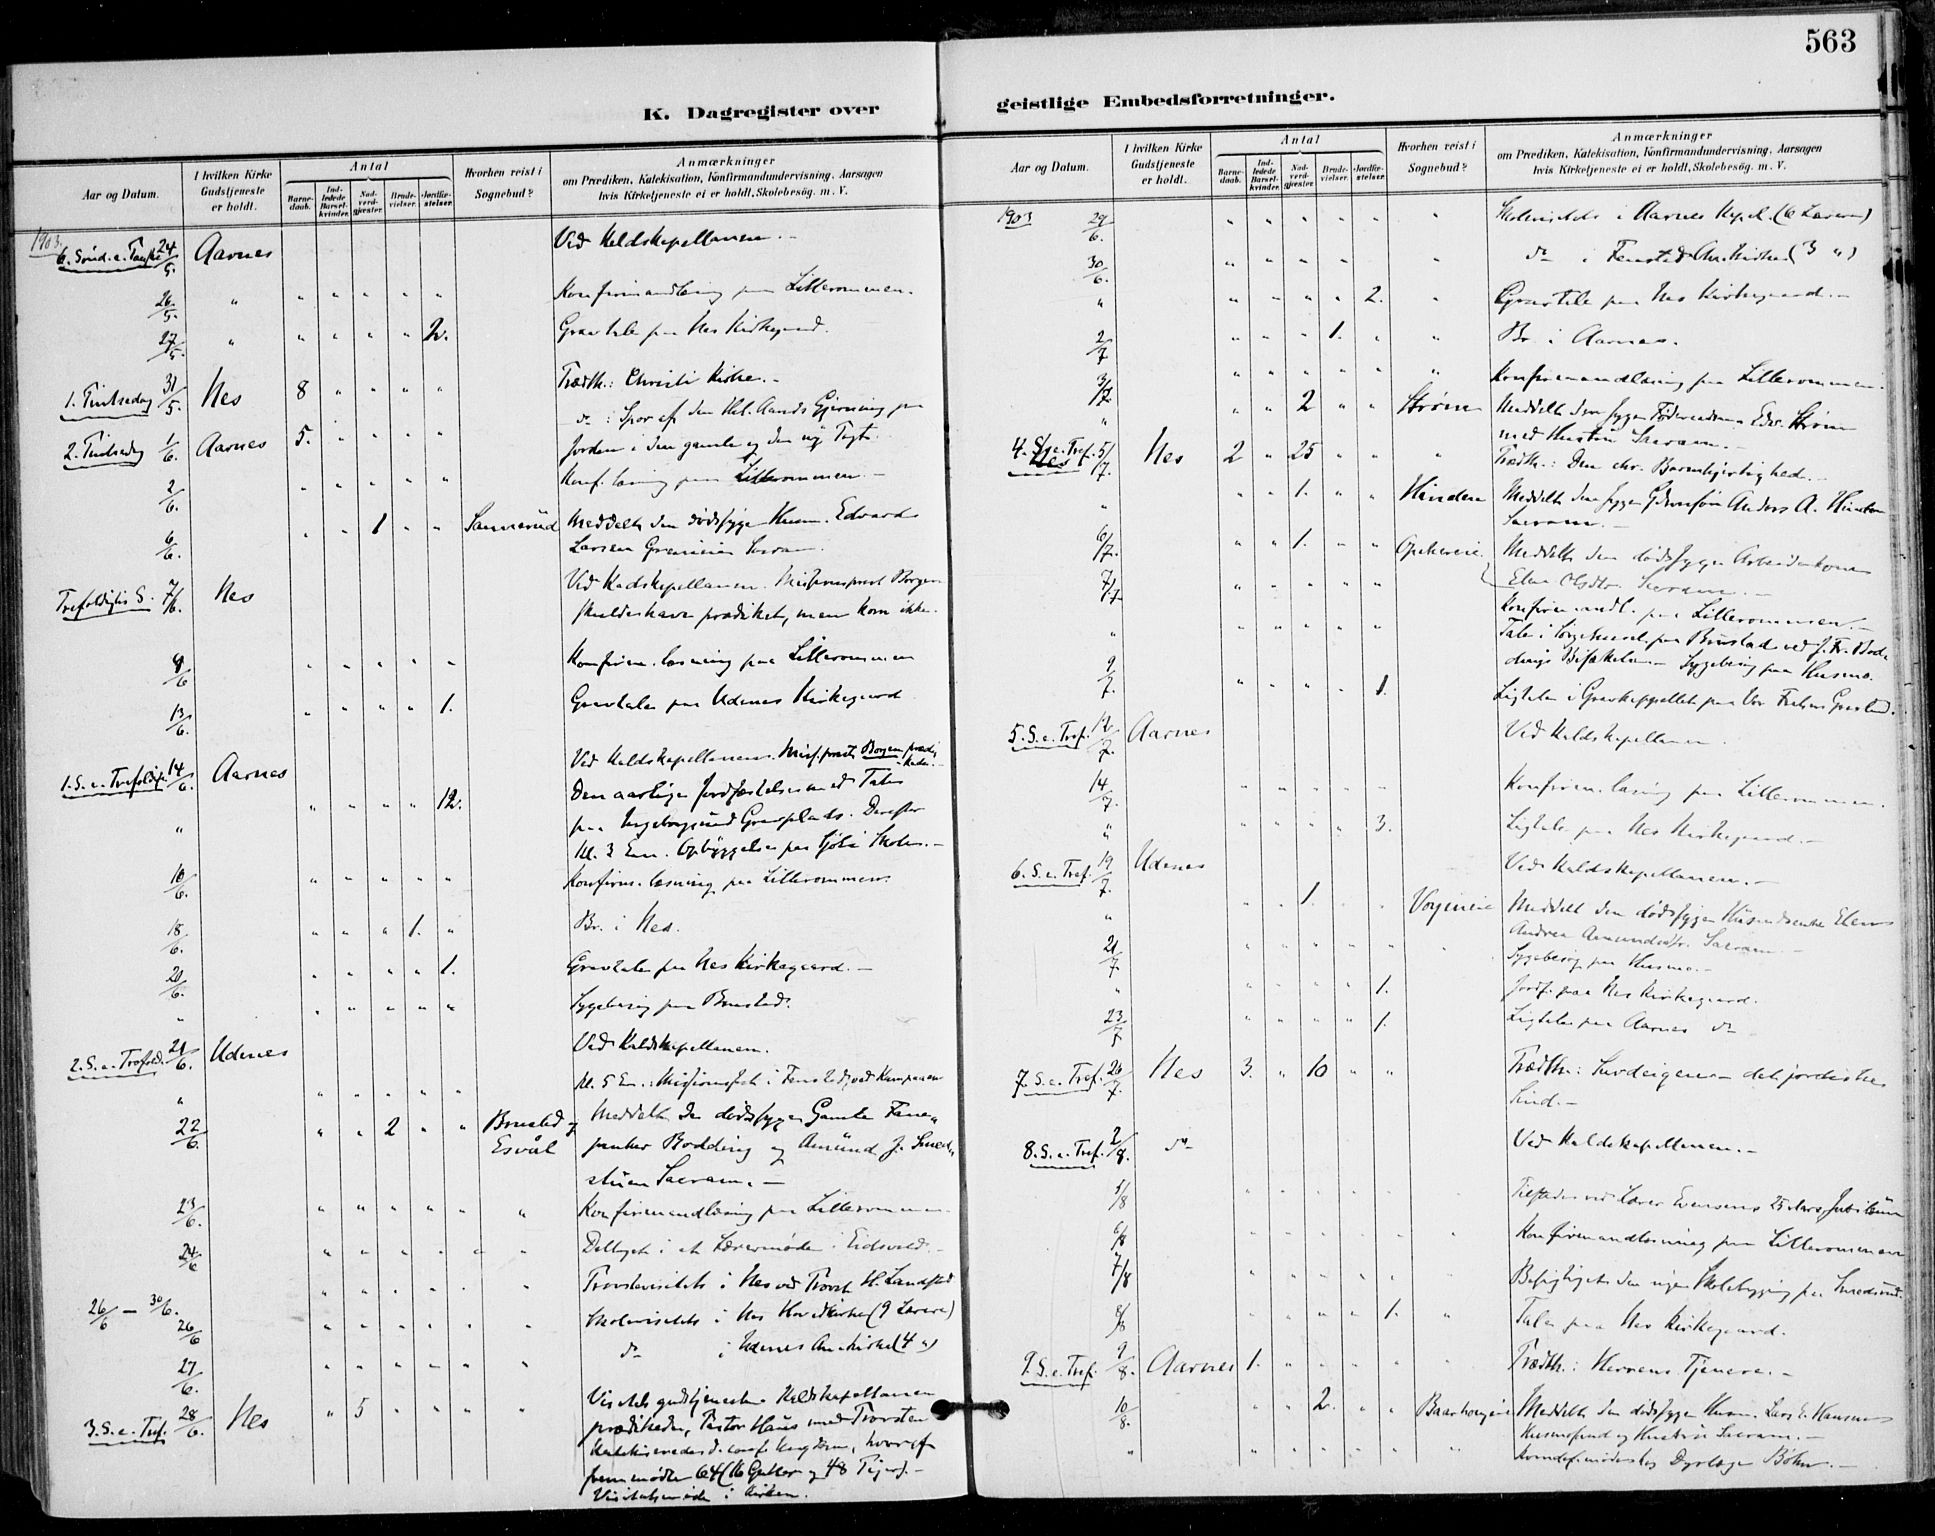 563
K. Dagregister over
Aar og Datum.
I hvilken Kirke
Gudstjeneste
er holdt.
Antal
Barne-
daab.
Ind-
ledede
Barsel-
kvinder.
Nad-
verd-
gjæster.
Brude-
vielser.
Jordfæ-
stelser.
Hvorhen reist i
Sognebud?
Anmærkninger
om Prædiken, Katekisation, Konfirmandundervisning, Aarsagen
hvis Kirketjeneste ei er holdt, Skolebesøg. m. V.
1903.
6. Sønd. e. Paaske 24/5. Aarnes Ved Kaldskapellanen.
26/5. " " " " " " Konfirmandlæsning paa Lillerommen.
27/5. " " " " " 2. Gravtale paa Nes Kirkegaard.
1. Pintsedag 31/5. Nes 8 " " " " Prædth.: Christi Kirke.
2. Pintsedag 1/6. Aarnes 5. " " " " do : Spor af den Hel. Aands Gjerning paa
Jorden i den gamle og den ny Pagt.
2/6. " " " " " Konf. læsning paa Lillerommen.
6/6. " " 1 " " Sannerud Meddelt den dødssyge Husm. Edvard
Larsen Sacram.
Trefoldighs S. 7/6. Nes Ved Kaldskapellanen. Missionsprest Borgen
skulde have prædiket, men kom ikke.
9/6 " " " " " Konfirm. læsning paa Lillerommen
13/6. " " " " 1. Gravtale paa Udenes Kirkegaard
1. S. e. Trefoldigh. 14/6. Aarnes Ved Kaldskapellanen. Miss.prest Borgen prædi-
kede.
" " " " " 12. Den aarlige Jordfæstelse med Tale
paa Ingeborgsrud Gravplads. Derefter
Kl. 3 Em. Opbyggelse paa Skole.
16/6. " " " " " Konfirm. læsning paa Lillerommen
18/6. " " " 1. " Br. i Nes.
20/6. " " " " 1. Gravtale paa Nes Kirkegaard.
" " " " " " Sygebesøg paa Brustad.
2. S. e. Trefold. 21/6. Udenes Ved Kaldskapellanen.
" " " " " " Kl. 5 Em.: Missionsfest i Fenstad, ved Kampenen
22/6. " " 2 " " Brustad og
Esvål
Meddelt de dødssyge Gamle Fane-
junker Bodding og Amund J. Smed-
stuen Sacram.
23/6. " " " " " " Konfirmandlæsning paa Lillerommen.
24/6 " " " " " " Deltaget i et Lærermøde i Eidsvold.
26/6 – 30/6. " " " " " " Provstevisitats i Nes ved Provst H. Landstad
26/6 " " " " " " Skolevisitats i Nes Hovedkirke (9 Lærere)
27/6. " " " " " " do i Udenes An.kirke (4 ")
3. S. e. Tref. 28/6. Nes " 5 " " " " Visitatsgudstjeneste. Kaldskapellanen
prædikede, Pastor Haus med Provsten
katekiserede d. conf. Ungdom, hvoraf
fremmødte 64 (16 Gutter og 48 Piger).
Visitatsmøde i Kirken.
geistlige Embedsforretninger.
Aar og Datum.
I hvilken Kirke
Gudstjeneste
er holdt.
Antal
Barne-
daab.
Ind-
ledede
Barsel-
kvinder.
Nad-
verd-
gjæster.
Brude-
vielser.
Jordfæ-
stelser.
Hvorhen reist i
Sognebud?
Anmærkninger
om Prædiken, Katekisation, Konfirmandundervisning, Aarsagen
hvis Kirketjeneste ei er holdt, Skolebesøg. m. V.
1903 29/6. " " " " " " Skolevisitats i Aarnes Kapel. (6 Lærere)
30/6. " " " " " " do i Fenstad An.kirke (3 ")
" " " " " 2. " Gravtale paa Nes Kirkegaard.
2/7 " " " 1. " " Br. i Aarnes.
3/7. " " " " " " Konfirmandlæsning paa Lillerommen.
" " " 2 " " Strøm Meddelt den syge Edv. Strøm
med Hustru Sacram.
4. S. e. Tref. 5/7. Nes 2 " 25 " " " Prædth.: Den chr. Barmhjertighed.
" " " 1. " " Hunden Meddelt den syge Anders A. Hunden
Sacram.
6/7. " " 1. " " Opakereie Meddelt den dødssyge Arbeiderkone
Elen Olsdtr. Sacram.
7/7. " " " " " Konfirmandl. paa Lillerommen.
" " " " " " Tale i Sørgehuset paa Brustad ved J. Fr. Bod-
dings Bisættelse. Sygebesøg paa Husmo.
9/7. " " " " 1. Ligtale i Gravkapellet paa Vor Frelsers Gravlund.
5. S. e. Tref. 12/7. Aarnes Ved Kaldskapellanen.
14/7. " " " " " Konfirm. læsning paa Lillerommen.
" " " " " 3. Ligtale paa Nes Kirkegaard.
6. S. e. Tref. 19/7. Udenes Ved Kaldskapellanen.
" " " 1. " " Meddelt den dødssyge Elen
Andrea Amundsdtr. Sacram.
21/7. " " " " " " Sygebesøg paa Husmo.
" " " " " 1. Jordf. paa Nes Kirkegaard.
23/7 " " " " 1. Ligtale paa Aarnes do
7. S. e. Tref. 26/7. Nes 3. " 10 " " Prædth.: det jordiske
Sind.
8. S. e. Tref. 2/8. do Ved Kaldskapellanen.
5/8 " " " " " " Tilstede ved Lærer Evensens 25 Aars Jubilæum
6/8 " " " " " " Konfirmandlæsning paa Lillerommen
7/8 " " " " " " Besigtiget den nye Skolebygning paa
8/8 " " " " 1. " Tale paa Nes Kirkegaard.
9. S. e. Tref. 9/8. Aarnes 1. " " " " " Prædth.: Herrens Tjenere.
10/8. " " 2. " " Meddelt den dødssyge Husm. Lars E. Hansen
og Hustru Sacram.
" " " " " " " hos Dyrlæge Bøhn.